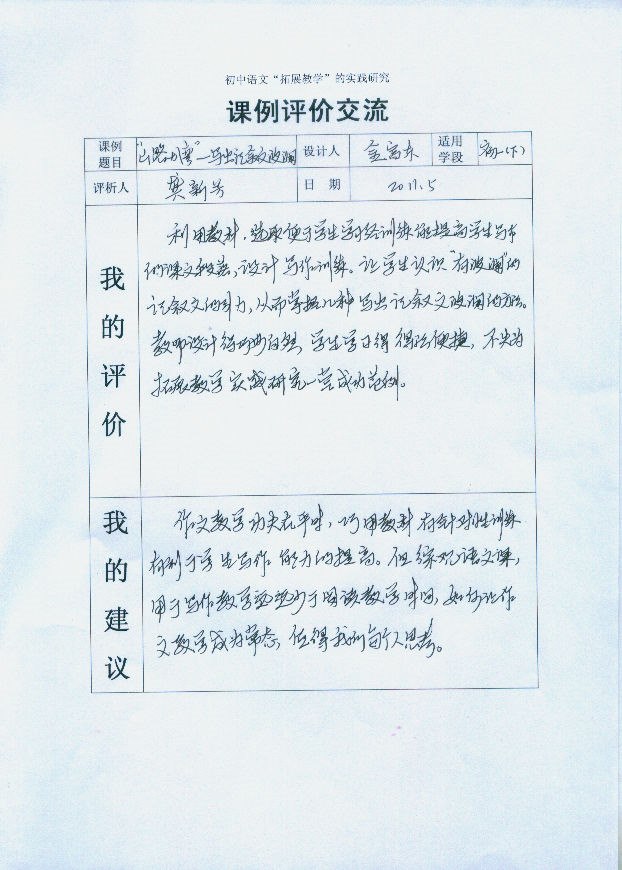 初中语文“拓展教学”的实践研究
课例评价交流
课例题目 “山路十八弯”—写出记叙文波澜 设计人 金富东 适用学段 初一(下)
评析人 樊新芳 日 期 2011.5
我的评价
利用教材，选取便于学生学习经训练能提高学生写作
的课文段落，设计写作训练。让学生认识“有波澜”的
记叙文的引力，从而掌握几种写出记叙文波澜的方法。
教师设计得巧妙自然，学生学习得 得法便捷，不失为
拓展教学实践研究一堂成功范例。
我的建议
作文教学功夫在平时，巧用教材有针对性训练
有利于学生写作能力的提高。但综观语文课，
用于写作教学远远少于阅读教学时间，如何让作
文教学成为常态，值得我们每个人思考。